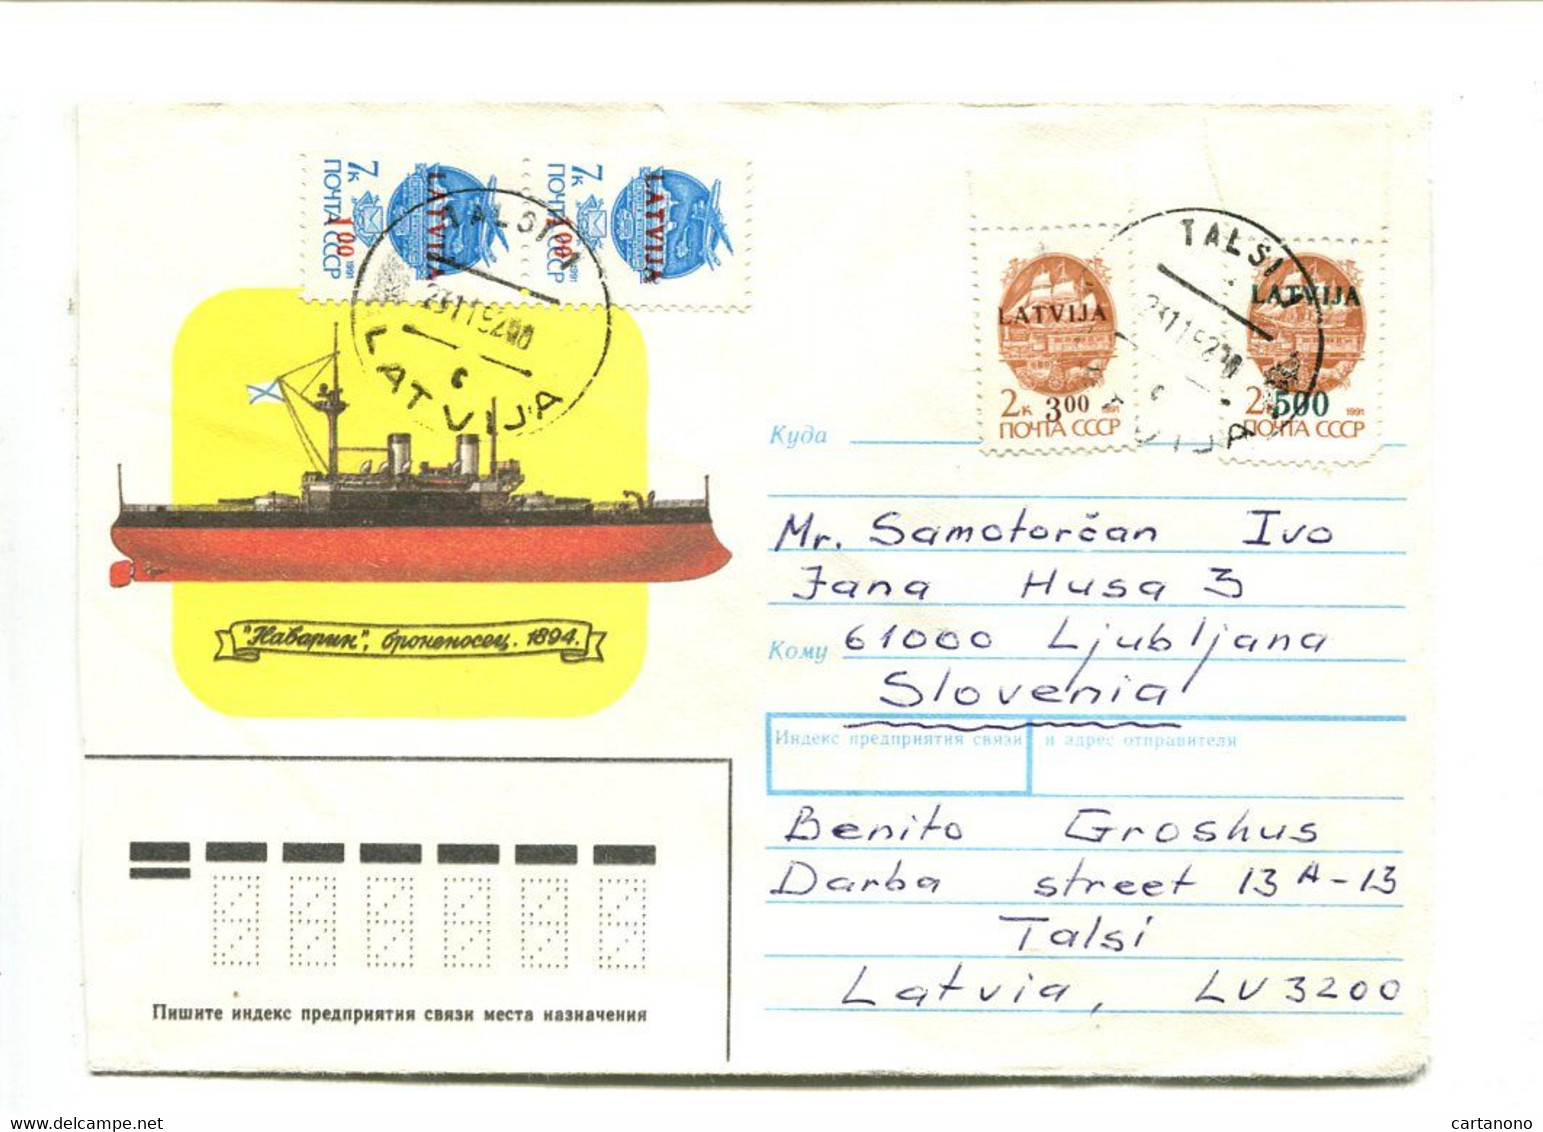 7к
ПОЧТА СССР
1991
LATVIJA
1 00
7к
ПОЧТА СССР
1991
LATVIJA
1 00
TALSI 1
231192
LATVIJA
с
LATVIJA
2к 3 00 1991
ПОЧТА СССР
TALSI
231192
LATVIJA
2к 500 1991
ПОЧТА СССР
"Наварин", броненосец. 1894.
Куда
Mr. Samotorčan Ivo
Jana Husa 3
Кому 61000 Ljubljana
Slovenia
Индекс предприятия связи и адрес отправителя
Benito Groshus
Darba street 13A-13
Talsi
Latvia, LV 3200
Пишите индекс предприятия связи места назначения
cartanono